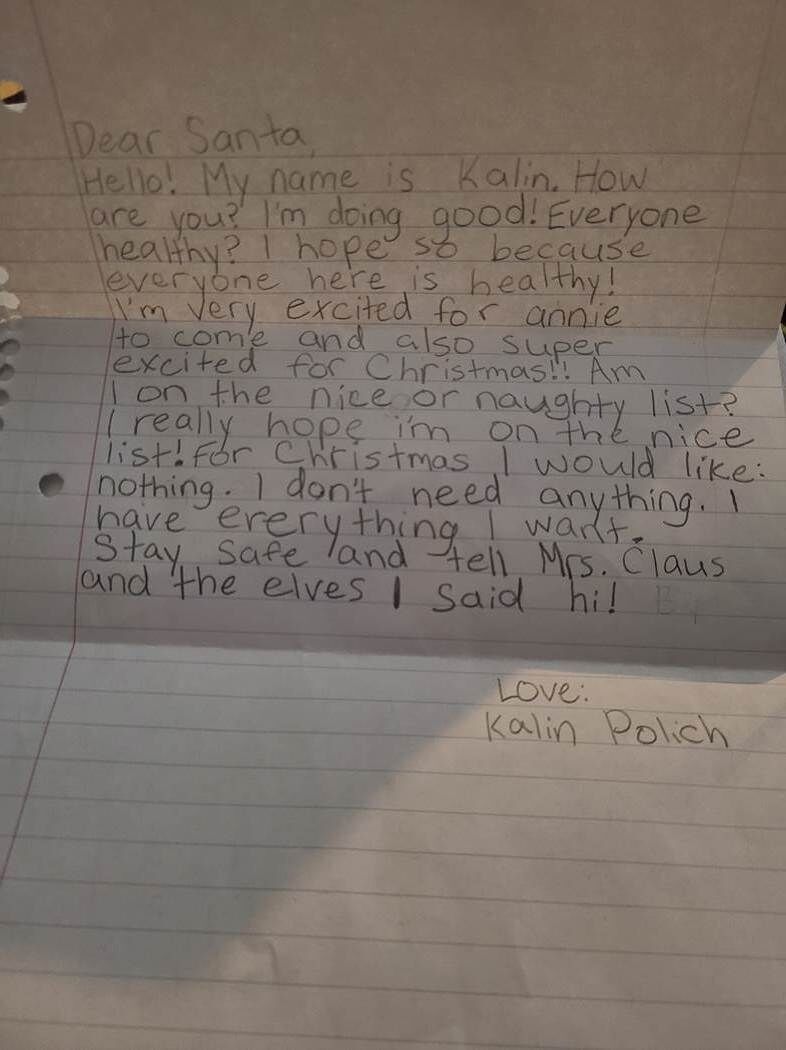 Dear Santa,
Hello! My name is Kalin. How
are you? I'm doing good! Everyone
healthy? I hope so because
everyone here is healthy!
I'm very excited for annie
to come and also super
excited for Christmas!! Am
I on the nice or naughty list?
I really hope i'm on the nice
list! for Christmas I would like:
nothing. I don't need anything. I
have everything I want.
Stay safe and tell Mrs. Claus
and the elves I said hi!
Love:
Kalin Polich